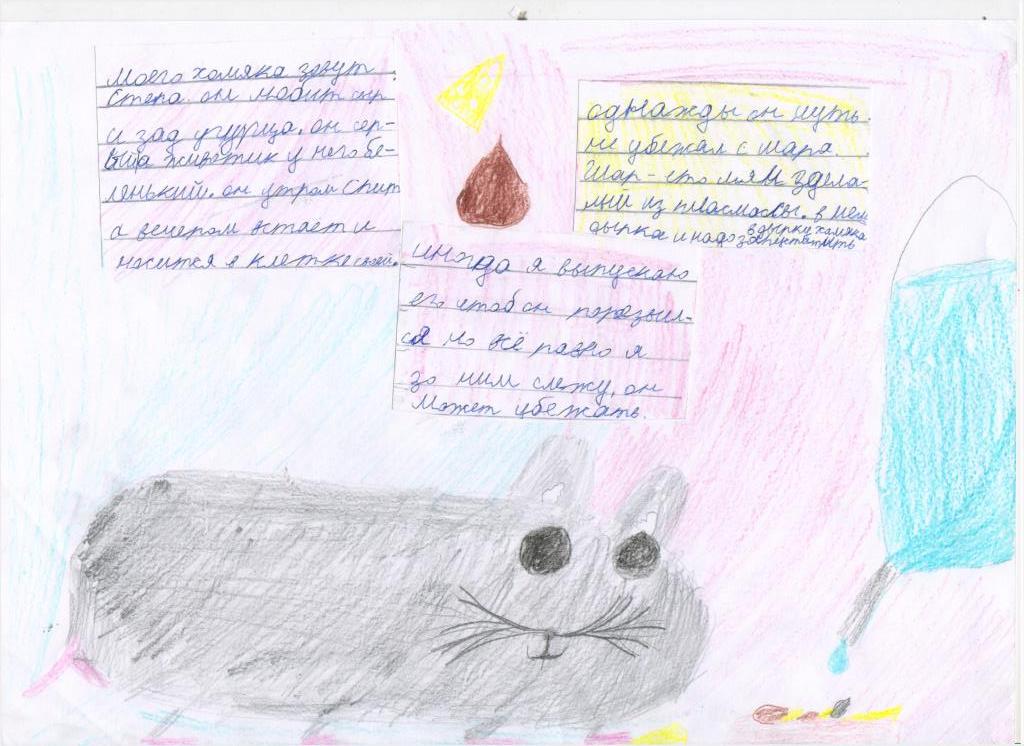 Моего хомяка зовут
Степа. он любит сыр
и зад угурца. он сер-
ый а животик у него бе-
ленький. он утром спит
а вечером встает и
носится в клетке своей.
однажды он чуть.
не убежал с шара.
Шар-это мям здела-
ный из пласмассы. в нем
дырка и надо
в дырку хомяка
запустить
иногда я выпускаю
его чтоб он порезвил-
ся но всё равно я
зо ним слежу, он
может убежать.